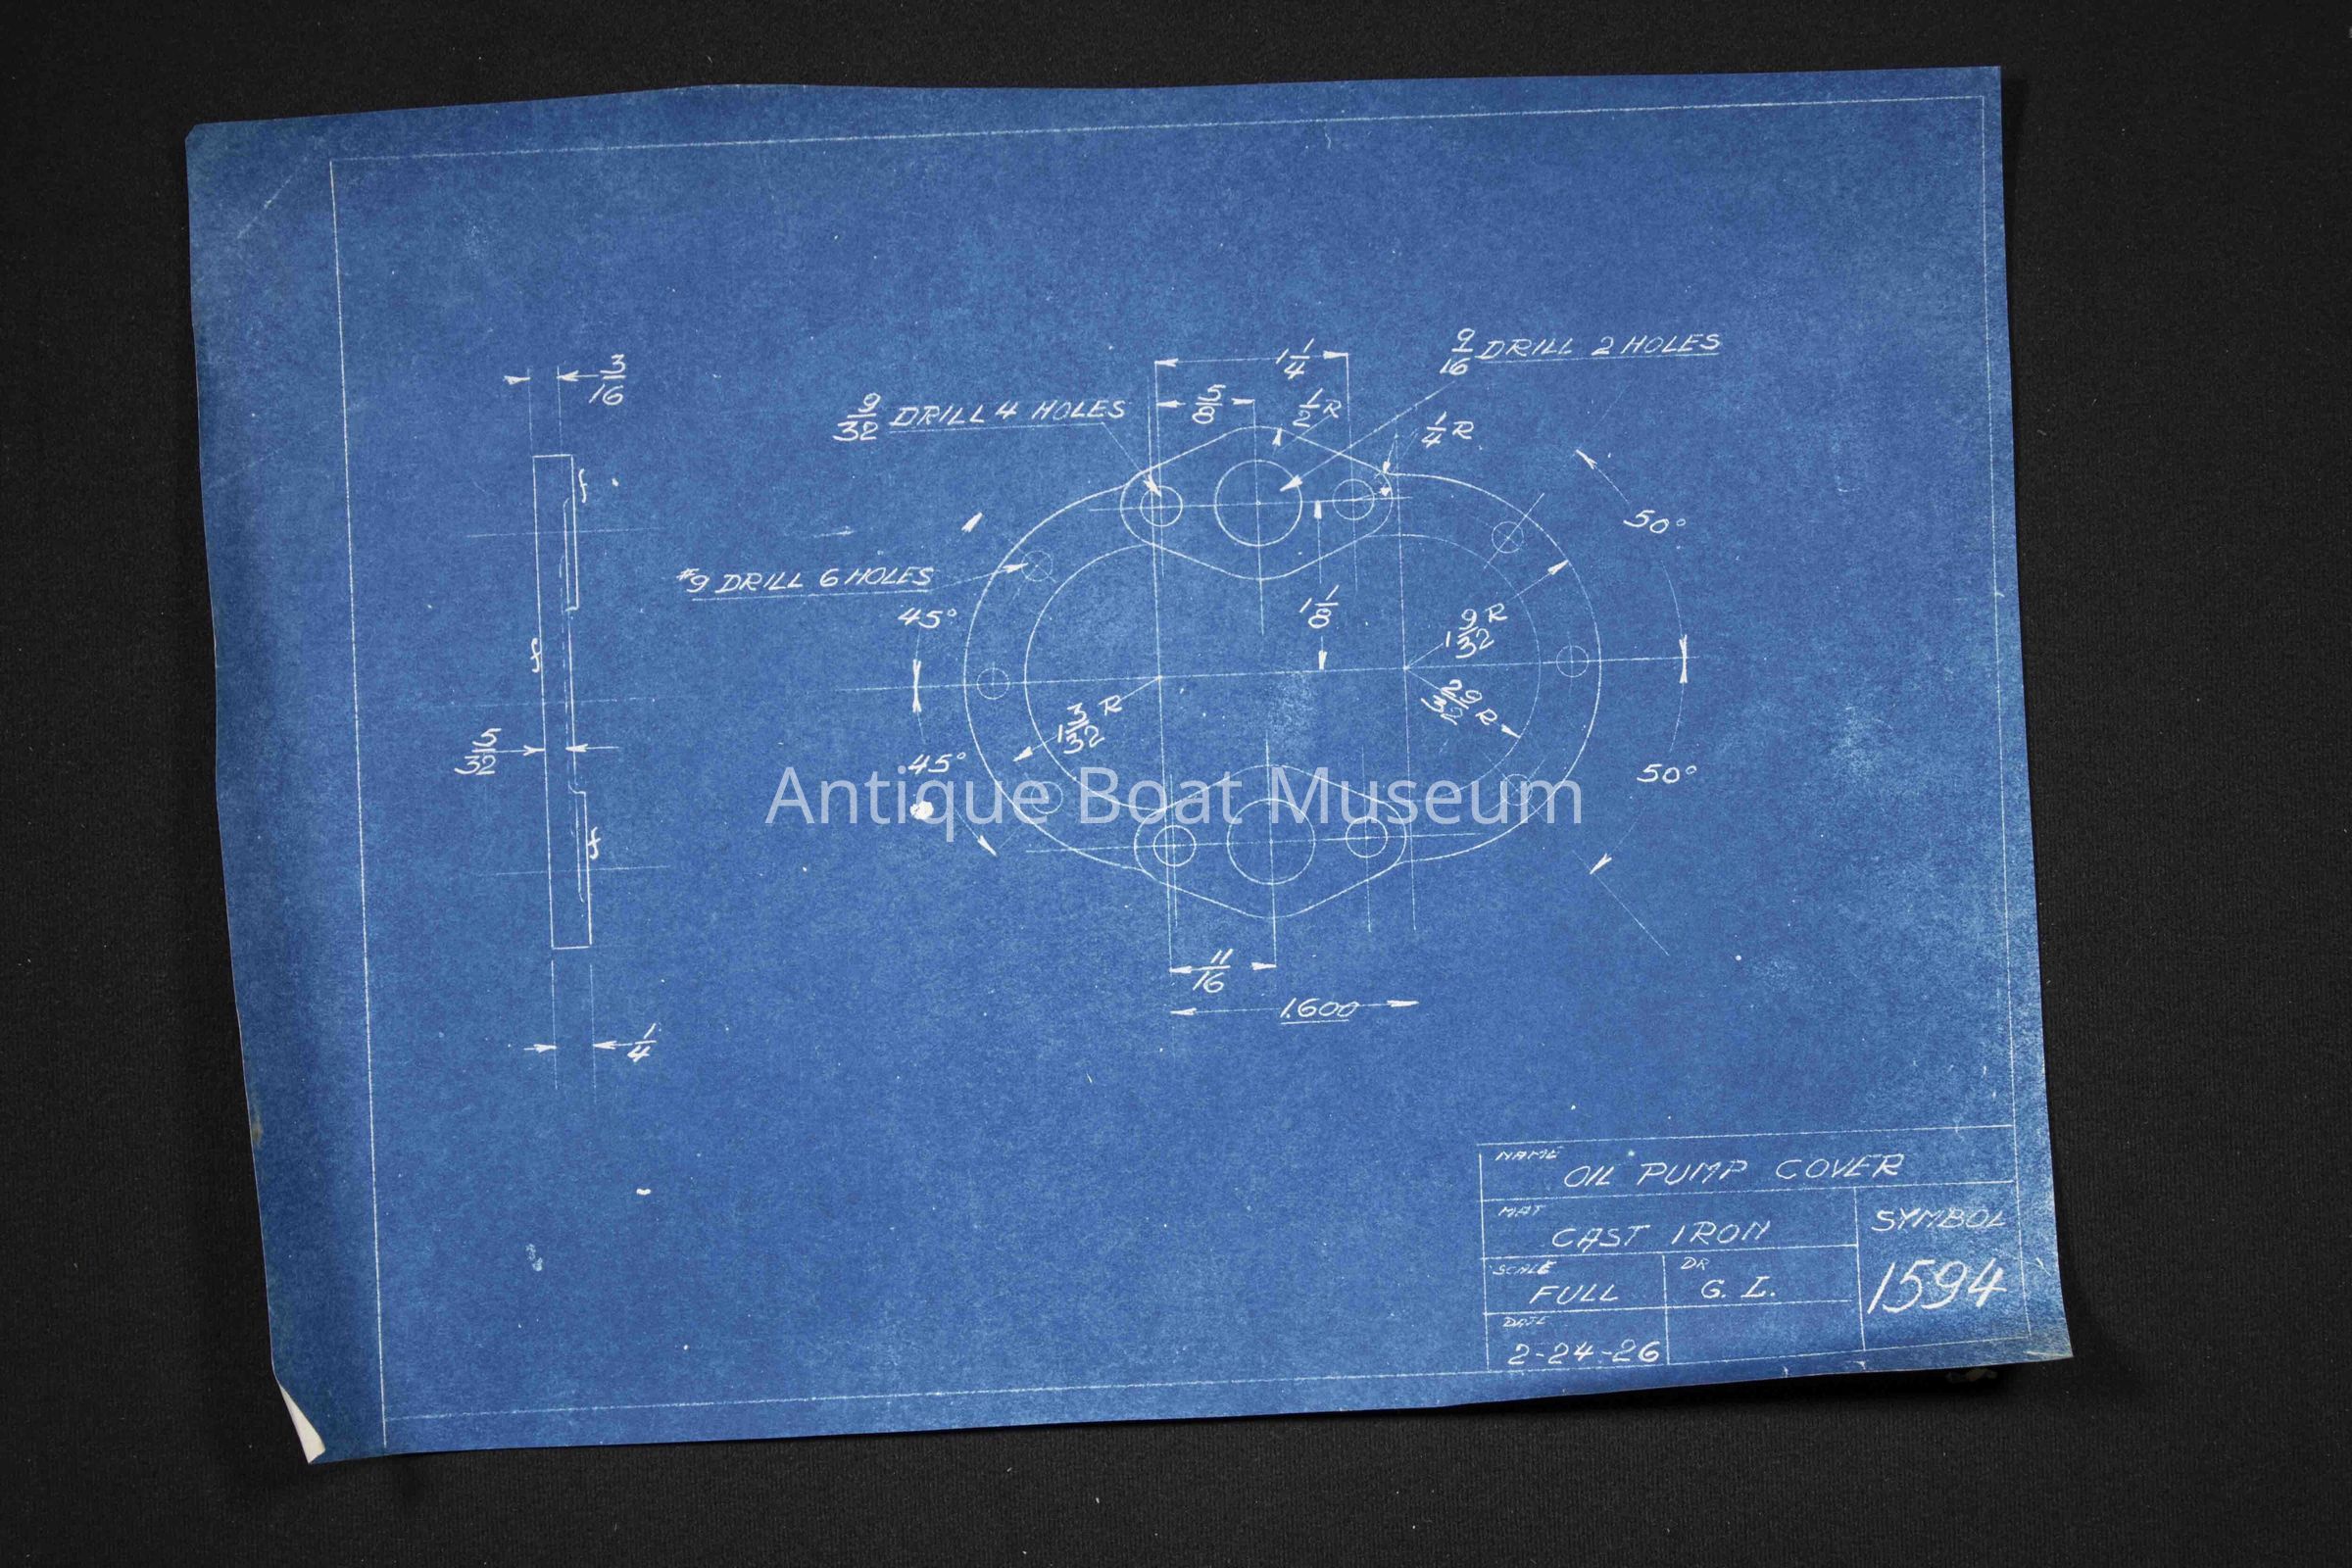 3/16
1 1/4
9/16 DRILL 2 HOLES
9/32 DRILL 4 HOLES
5/8
1/2 R
1/4 R
f
50°
#9 DRILL 6 HOLES
45°
1 1/8
1 9/32 R
f
1 3/32 R
29/32 R
5/32
45°
50°
Antique Boat Museum
f
11/16
1.600
1/4
NAME
OIL PUMP COVER
MAT
CAST IRON
SYMBOL
1594
SCALE
FULL
DR
G. L.
DATE
2-24-26